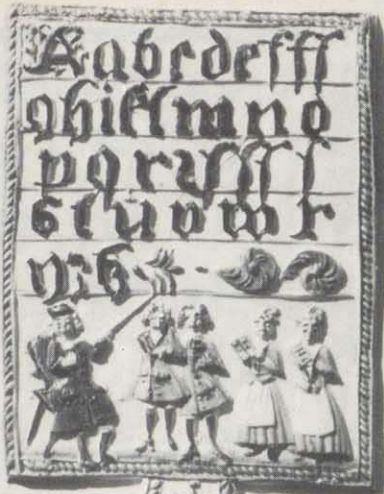 Aabcdefff
ghiklmno
pqrꝛſſſ
stuvwx
yz